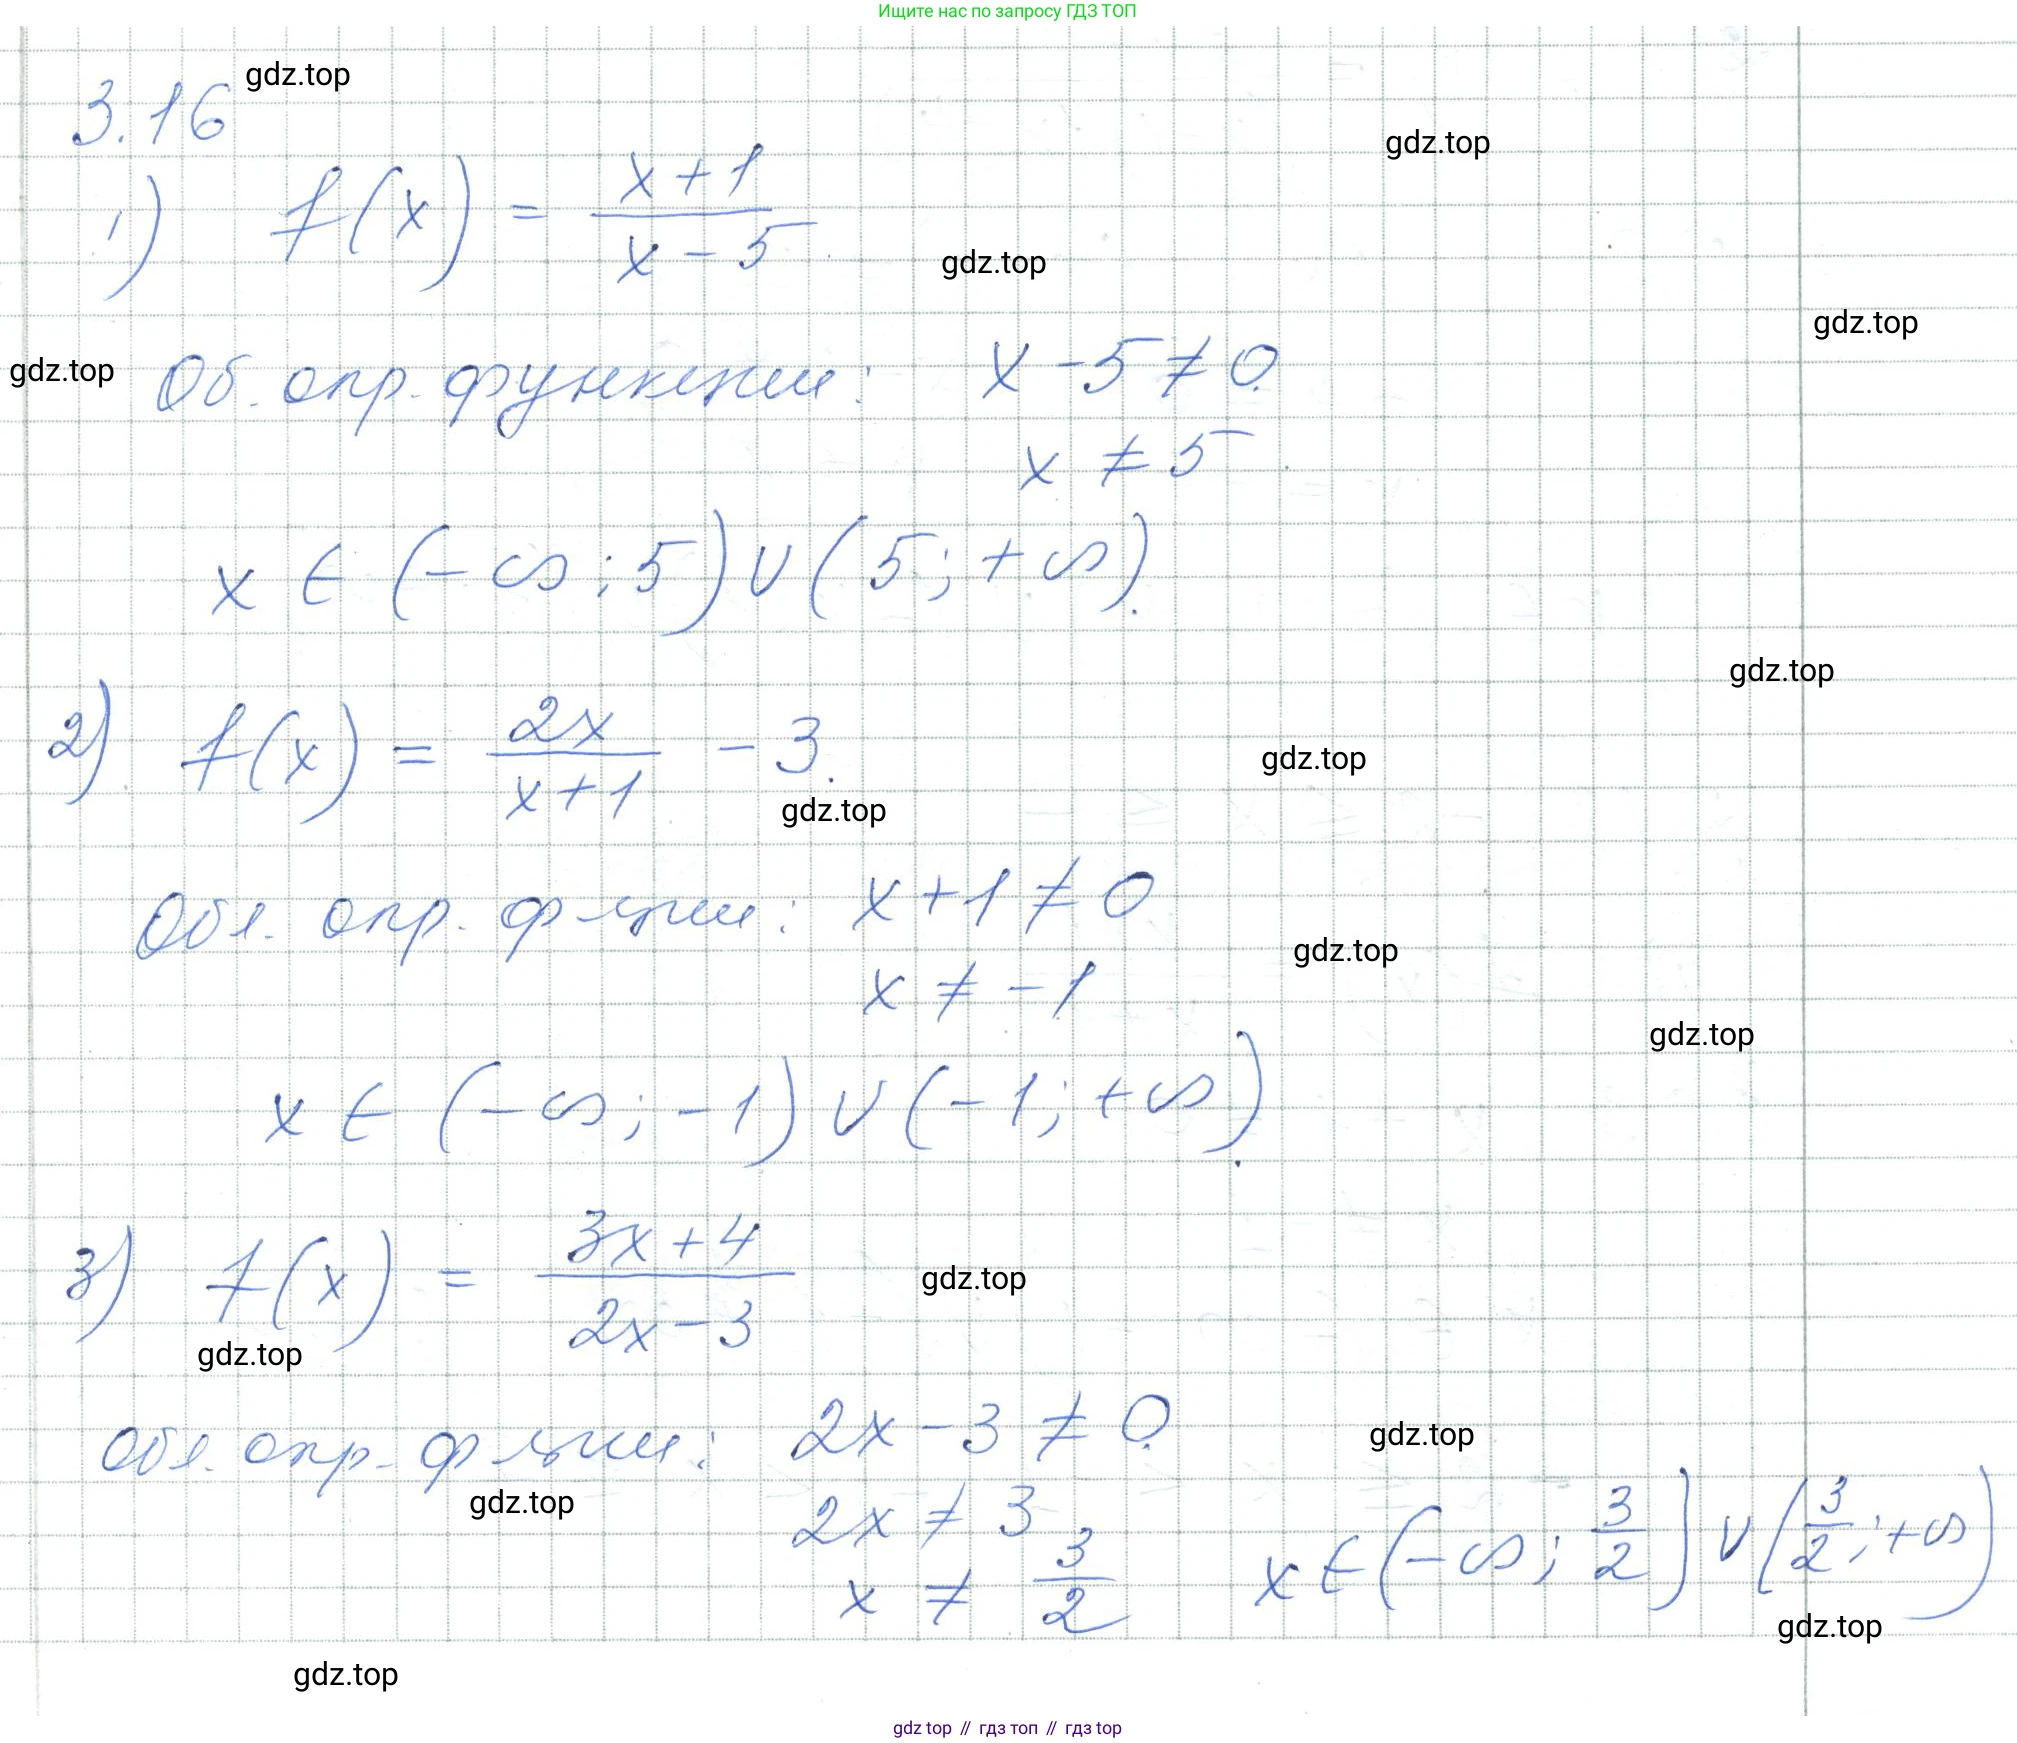 Ищите нас по запросу ГДЗ ТОП
3.16
gdz.top
gdz.top
1) f(x) = (x+1)/(x-5)
gdz.top
gdz.top
gdz.top
Об. опр. функции: x-5≠0.
x ≠ 5
x ∈ (-∞; 5) ∪ (5; +∞).
gdz.top
2) f(x) = 2x/(x+1) - 3.
gdz.top
gdz.top
Обл. опр. ф-ции: x+1≠0
gdz.top
x ≠ -1
gdz.top
x ∈ (-∞; -1) ∪ (-1; +∞).
3) f(x) = (3x+4)/(2x-3)
gdz.top
gdz.top
Обл. опр. ф-ции: 2x-3≠0.
gdz.top
gdz.top
2x ≠ 3
x ≠ 3/2 x ∈ (-∞; 3/2) ∪ (3/2; +∞)
gdz.top
gdz.top
gdz top // гдз топ // гдз top